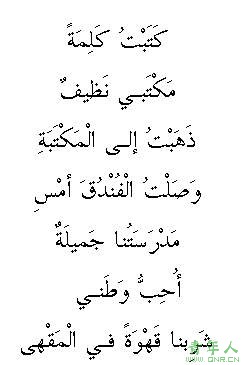 كَتَبْتُ كَلِمَةً
مَكْتَبي نَظيفٌ
ذَهَبْتُ إلى الْمَكْتَبَةِ
وَصَلْتُ الْفُنْدُقَ أمْسِ
مَدْرَسَتُنا جَميلَةٌ
أُحِبُّ وَطَني
شَرِبنا قَهْوَةً في الْمَقْهى
青年人
WWW.QNR.CN